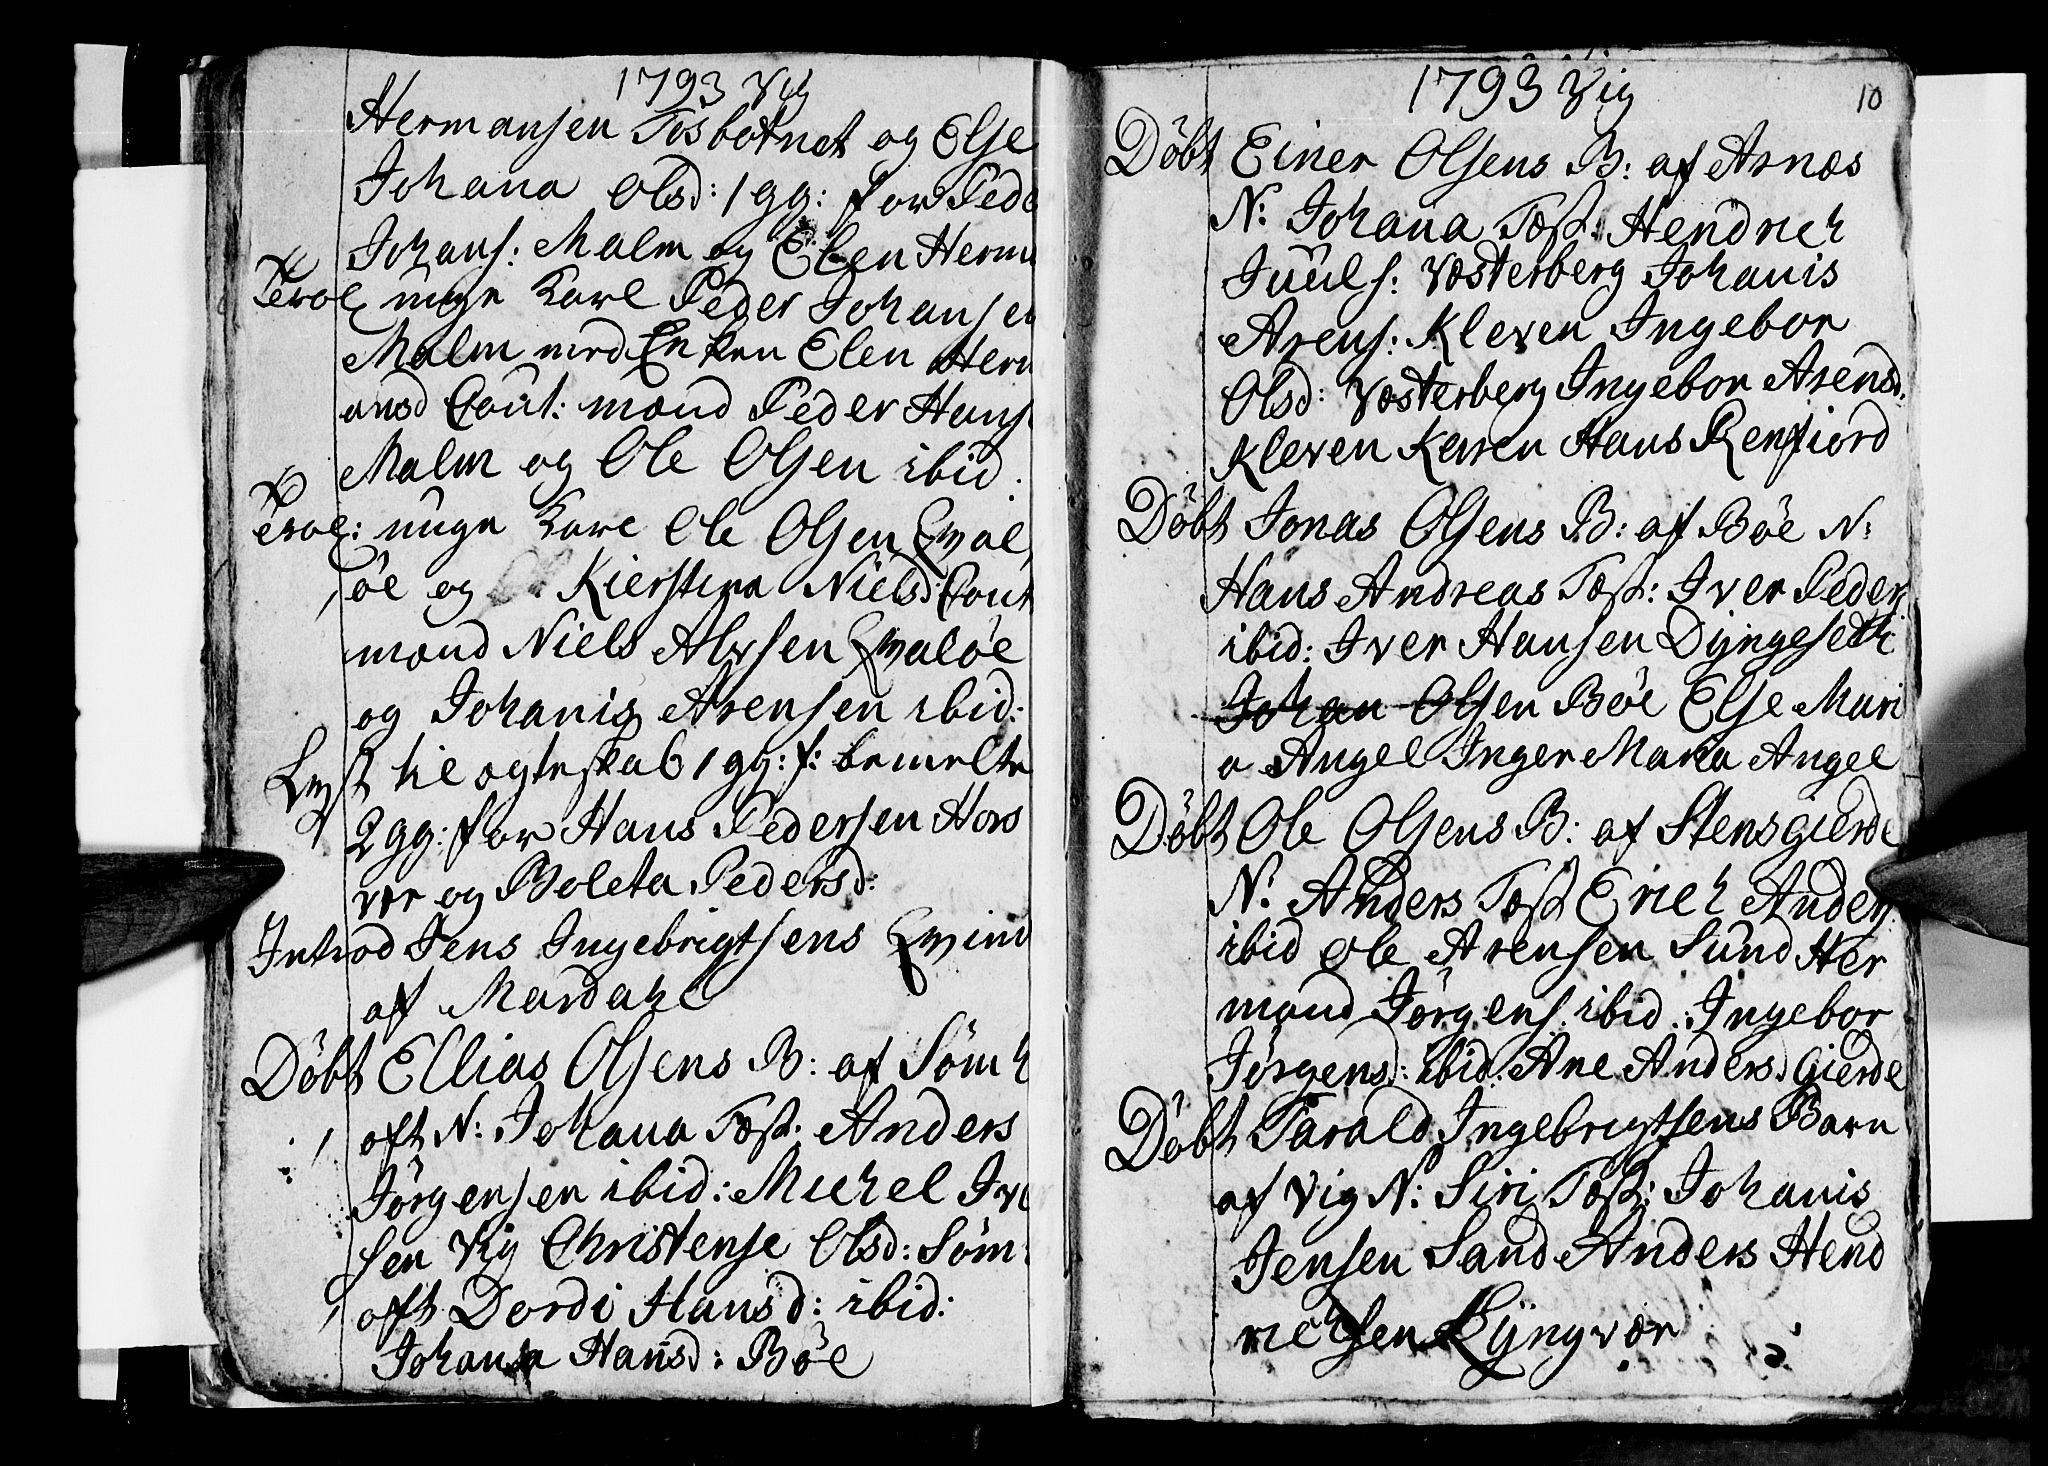 1793 Vig
Hermansen Tosbotnet og Else
Johana Olsd: 1 gg: for Pede
Johans: Malm og Elen Herm
Trol unge Karl Peder Johansen
Malm med Enken Elen Herm
ansd Caut: mænd Peder Hans
Malm og Ole Olsen ibid:
Trol: unge Karl Ole Olsen Qval
öe og Kierstina Nielsd: Caut
mænd Niels Alvsen Qvalöe
og Johanis Arensen ibid:
Lyst til ægteskab 1 gg: f: bemelte
2 gg: for Hans Pedersen Hors
vær og Boleta Pedersd:
Introd Jens Ingebrigtsens Qvind
af Mardahl
Döbt Ellias Olsens B: af Sömh
oft N: Johana Test: Anders
Jörgensen ibid: Michel Iver
sen Vig Christense Olsd: Söm
oft Dordi Hansd: ibid:
Johana Hansd: Böe
1793 Vig
10
Döbt Einer Olsens B: af Arnæs
N: Johana Test: Hendrich
Juuls: Vesterberg Johanis
Arens: Kleven Ingebor
Olsd: Vesterberg Ingebor Arensd:
Kleven Karen Hans Renfiord
Döbt Jonas Olsens B: af Böe N:
Hans Andreas Test: Iver Peders
ibid: Iver Hansen Dyngeseth
Johan Olsen Böe Else Mari
a Angel Inger Maria Angel
Döbt Ole Olsens B: af Stensgierde
N: Anders Test Erich Anders
ibid Ole Arensen Sund Her
mand Jörgens: ibid: Ingebor
Jörgensd: ibid: Ane Andersd Gierde
Döbt Tarald Ingebrigtsens Barn
af Vig N: Siri Test: Johanis
Jensen Sand Anders Hend
richsen Lyngvær